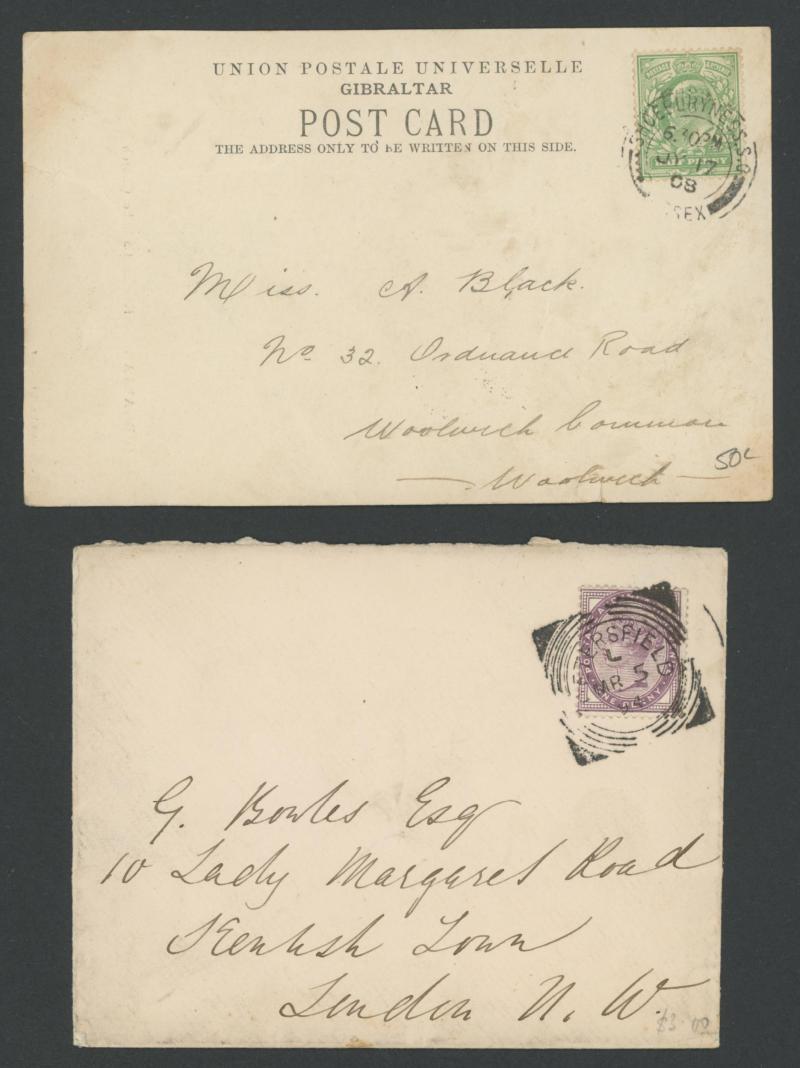 UNION POSTALE UNIVERSELLE
GIBRALTAR
POST CARD
THE ADDRESS ONLY TO BE WRITTEN ON THIS SIDE.
6.30PM
JY 17
08
SEX
Miss. A. Black.
No 32. Ordnance Road
Woolwich Common
Woolwich
50c
ERSFIELD
L
MR 5
94
G. Bowles Esq
10 Lady Margaret Road
Kentish Town
London N. W.
$3.00